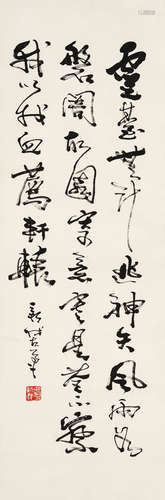 靈臺無計逃神矢風雨如
磐闇故園寄意寒星荃不察
我以我血薦軒轅